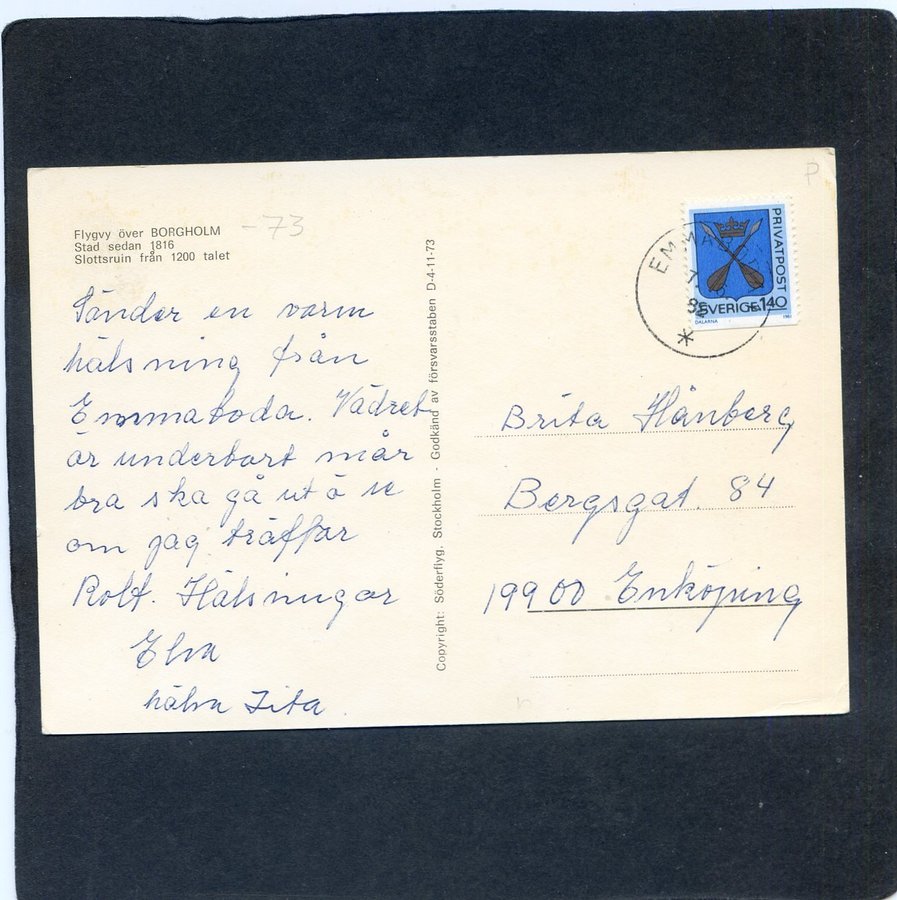 Flygvy över BORGHOLM
Stad sedan 1816
Slottsruin från 1200 talet
-73
P
Sänder en varm
hälsning från
Emmaboda. Vädret
är underbart mår
bra ska gå ut å se
om jag träffar
Rolf. Hälsningar
Elva
hälsa Zita.
Copyright: Söderflyg, Stockholm - Godkänd av försvarsstaben D-4-11-73
EMMABODA
PRIVATPOST
SVERIGE 140
DALARNA
Brita Hånberg
Bergsgat. 84
199 00 Enköping